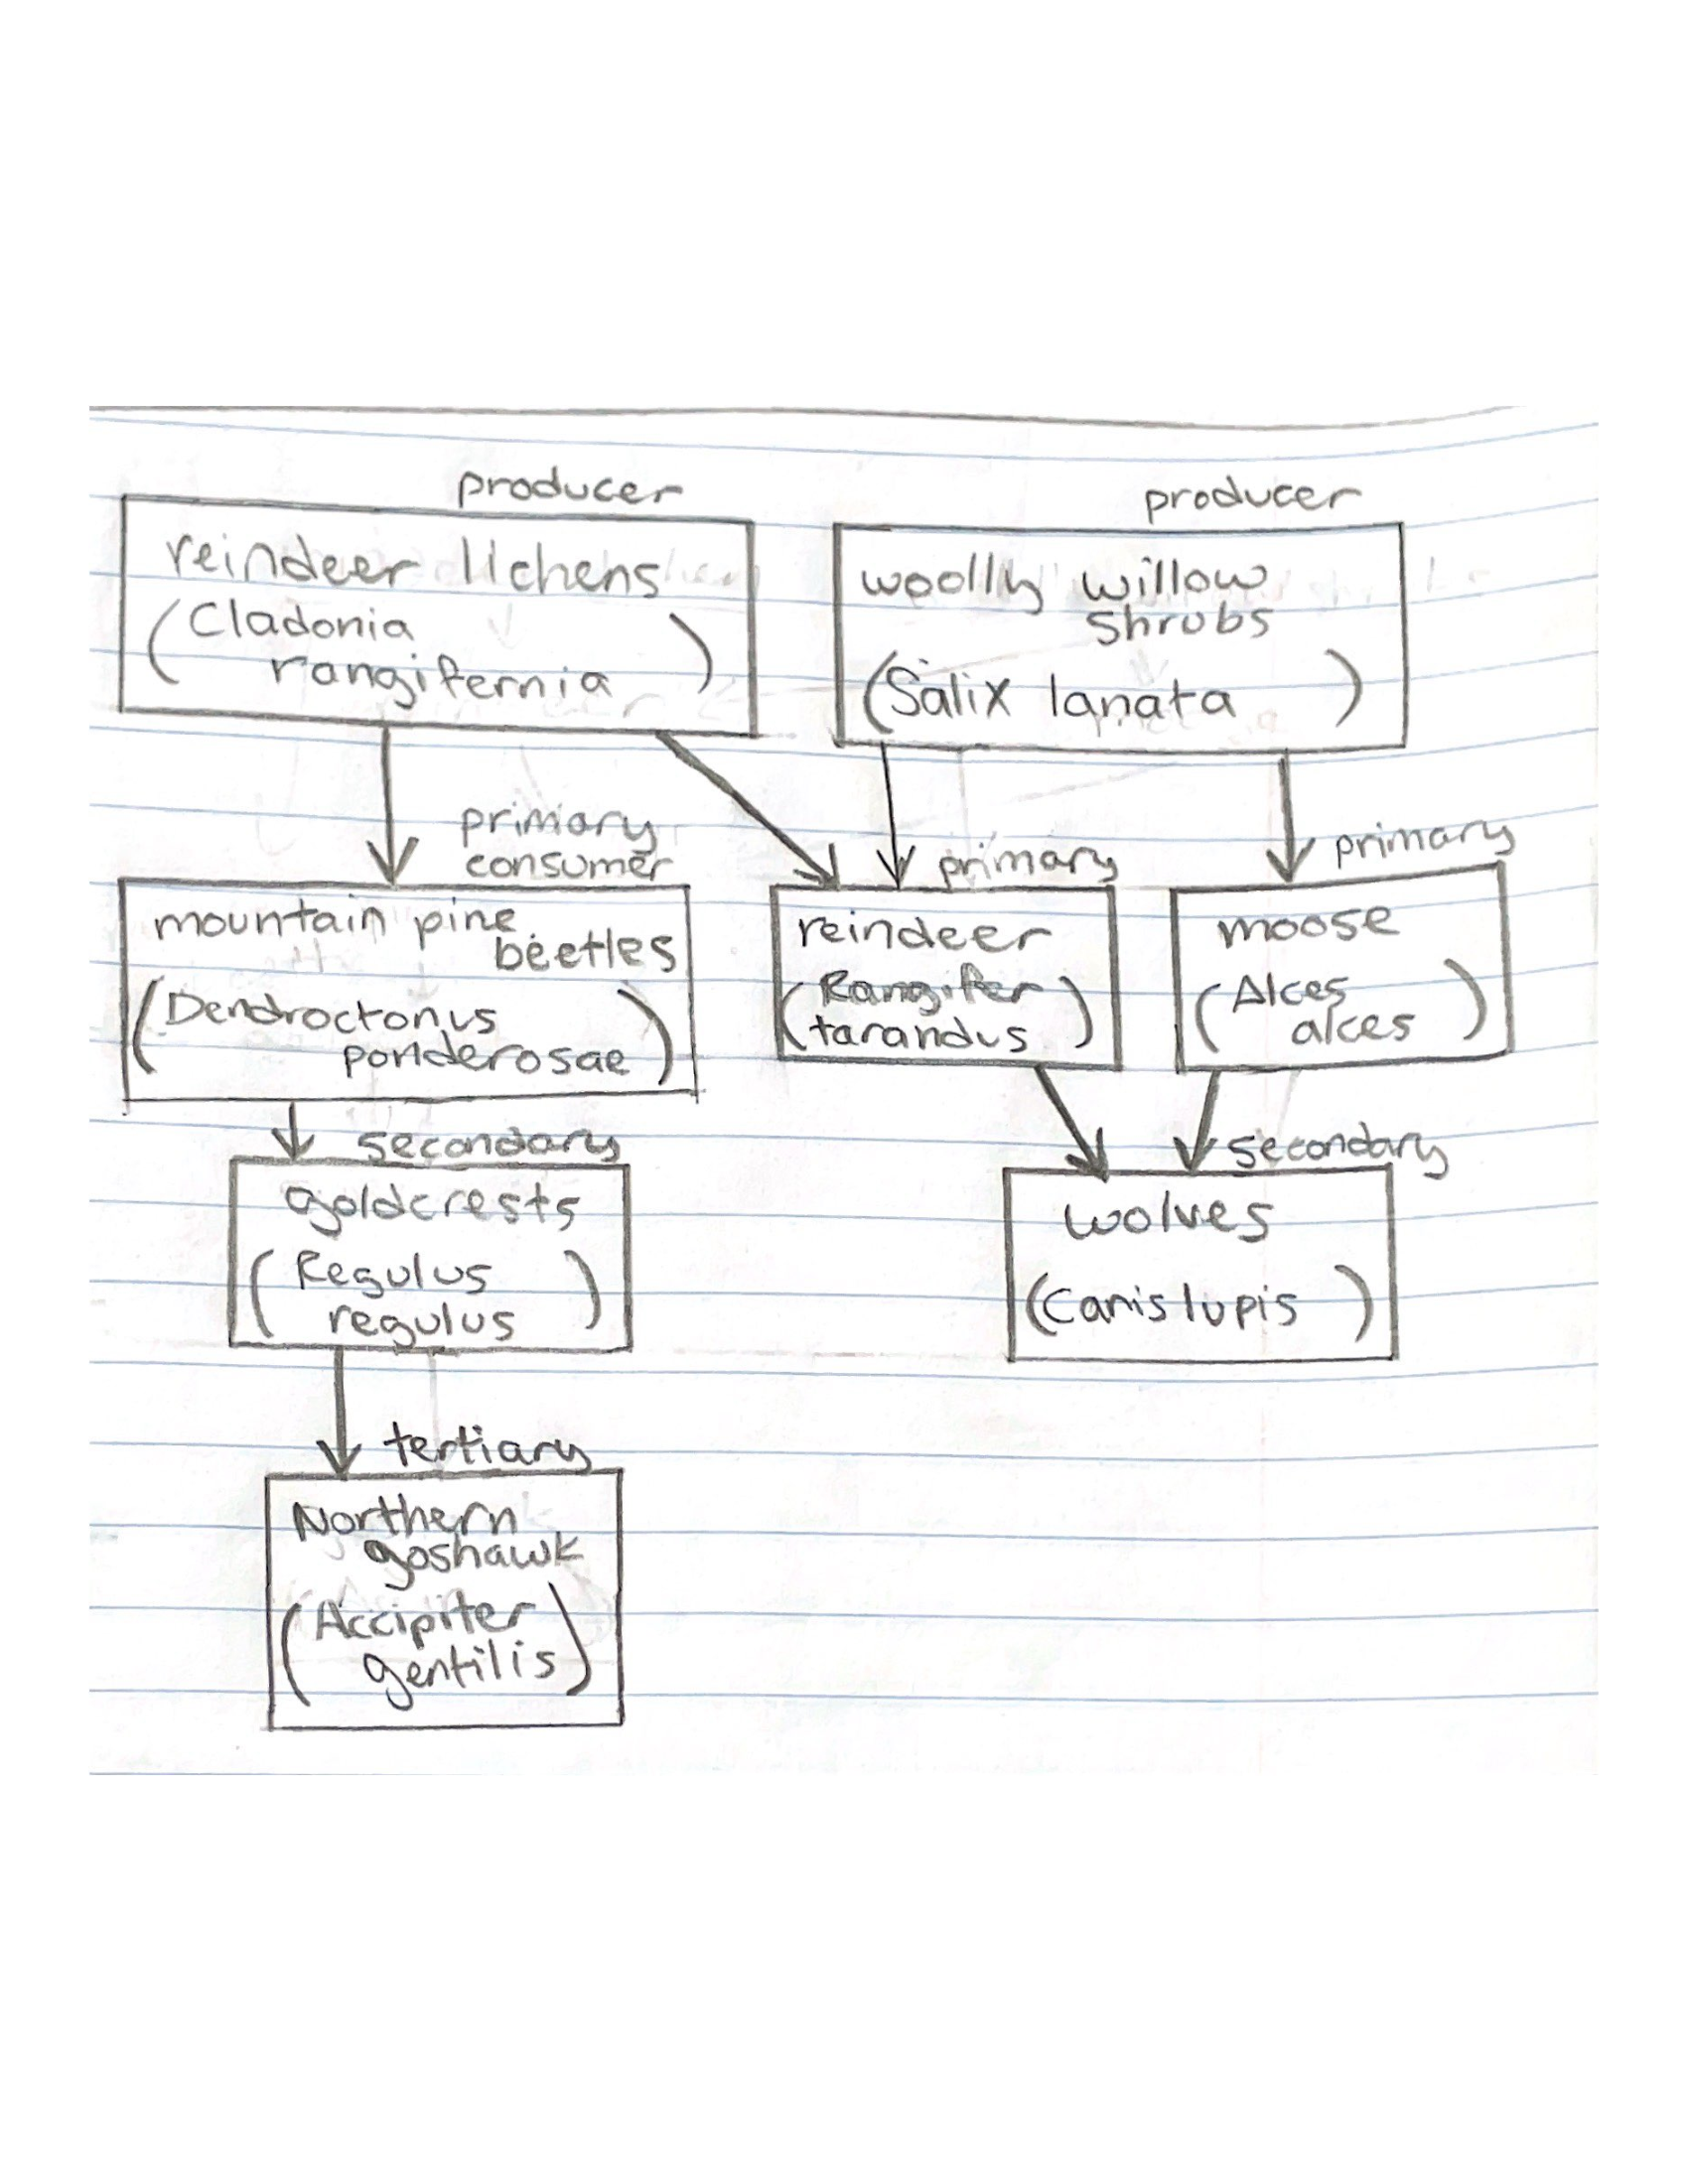 producer
reindeer lichens
(Cladonia
rangifernia)
producer
woolly willow
shrubs
(Salix lanata)
primary
consumer
mountain pine
beetles
(Dendroctonus
ponderosae)
primary
reindeer
(Rangifer
tarandus)
primary
moose
(Alces
alces)
secondary
goldcrests
(Regulus
regulus)
secondary
wolves
(Canis lupis)
tertiary
Northern
goshawk
(Accipiter
gentilis)